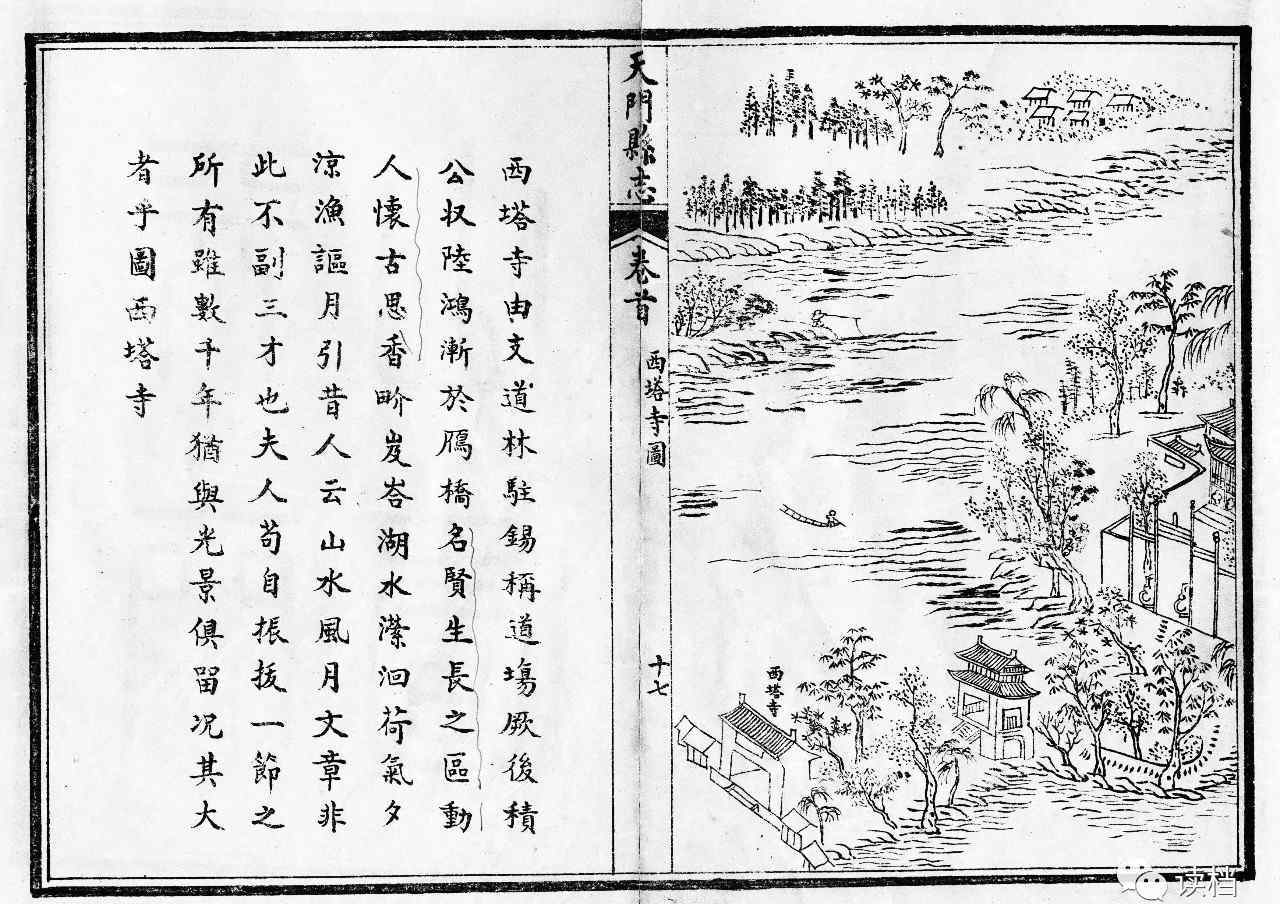 西塔寺
天門縣志
卷首
西塔寺圖
十七
西塔寺由支道林駐錫稱道場厥後積
公収陸鴻漸於鴈橋名賢生長之區動
人懷古思香畍岌峇湖水瀠洄荷氣夕
涼漁謳月引昔人云山水風月文章非
此不副三才也夫人苟自振拔一節之
所有雖數千年猶與光景俱留况其大
者乎圖西塔寺
读档